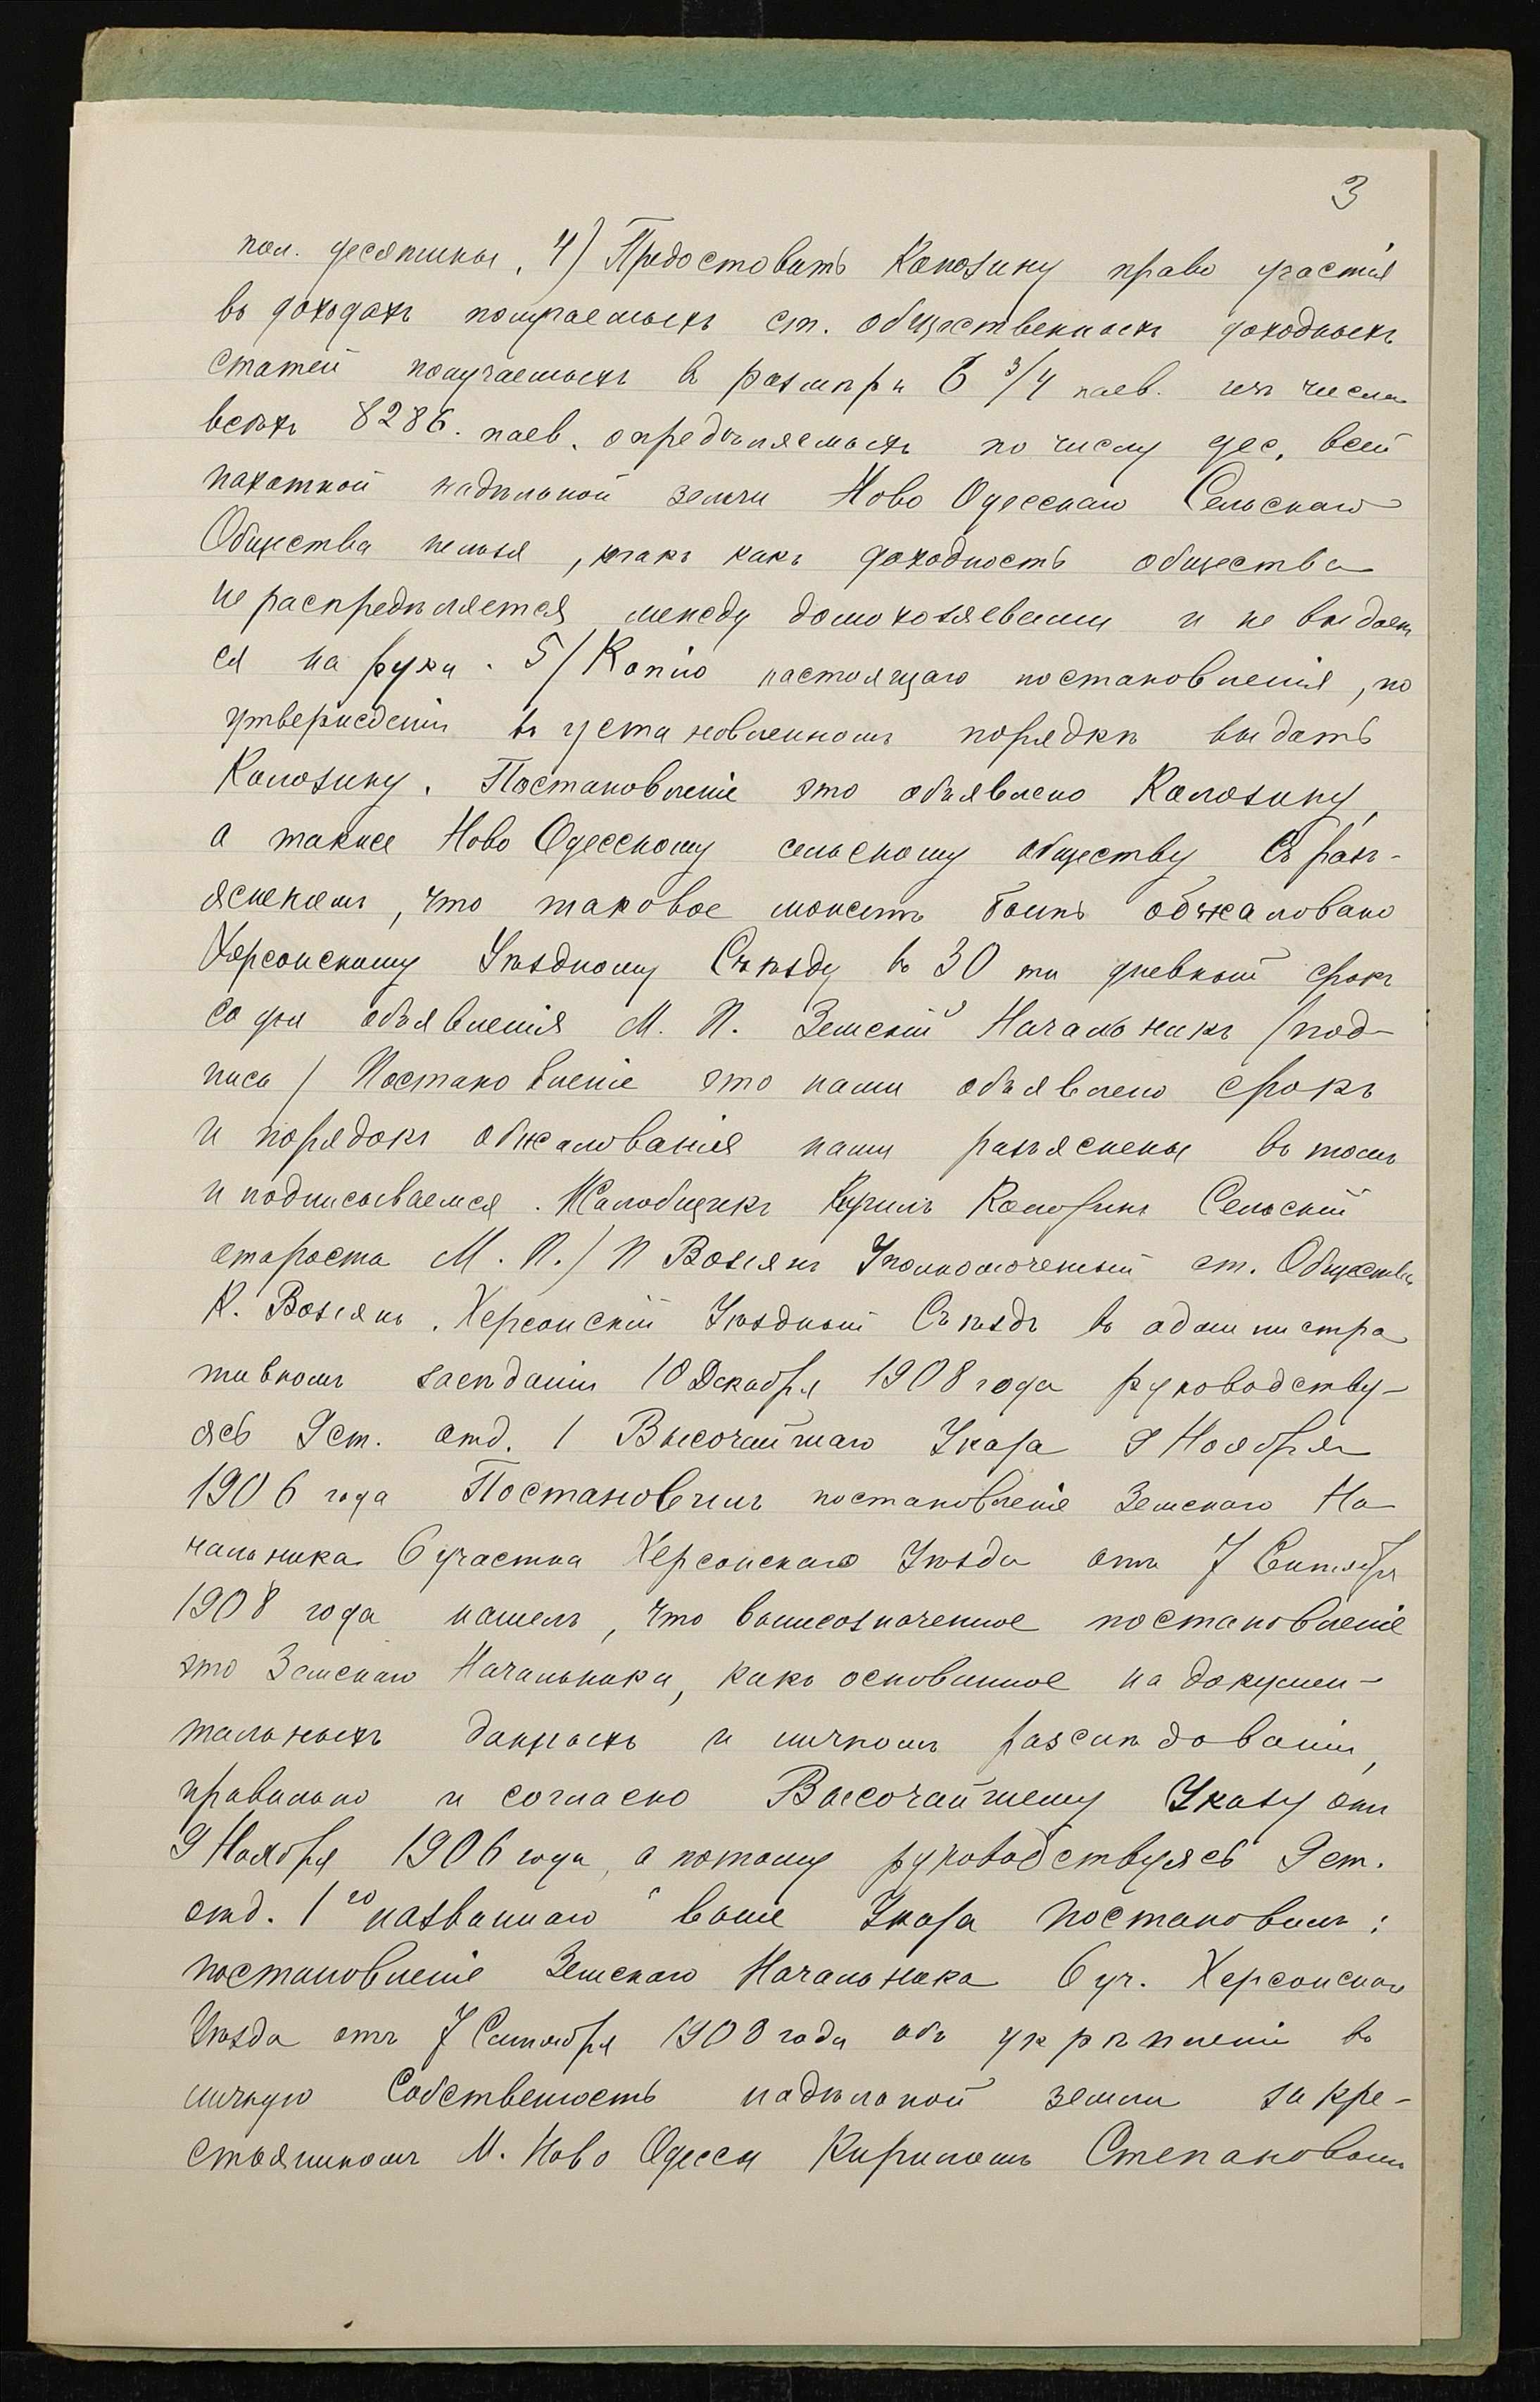 3
пол. десятины, 4) Предоставить Колозину право участія
въ доходахъ получаемыхъ ст. общественныхъ доходныхъ
статей получаемыхъ въ размѣрѣ 6 3/4 паев. изъ числа
всѣхъ 8286. паев. опредѣляемыхъ по числу дес. всей
пахатной надѣльной земли Ново Одесскаго Сельскаго
Общества нельзя, такъ какъ доходность общества
не распредѣляется между домохозяевами и не выдает
ся на руки. 5/ Копію настоящаго постановленія, по
утвержденіи въ установленномъ порядкѣ выдать
Колозину. Постановленіе это объявлено Колозину,
а также Ново Одесскому сельскому обществу съ разъ-
ясненіемъ, что таковое можетъ быть обжаловано
Херсонскому Уѣздному Съѣзду въ 30 ти дневный срокъ
со дня объявленія М. П. Земскій Начальникъ /под-
пись/ Постановленіе это намъ объявлено срокъ
и порядокъ обжалованія намъ разъяснены въ томъ
и подписываемся. Жалобщикъ Кирилъ Колозинъ Сельскій
староста М. П./ П Возіянъ Уполномоченный ст. Общества
К. Возіянъ. Херсонскій Уѣздный Съѣздъ въ администра
тивномъ засѣданіи 10 Декабря 1908 года руководству-
ясь 9 ст. отд. 1 Высочайшаго Указа 9 Ноября
1906 года Постановилъ постановленіе Земскаго На-
чальника 6 участка Херсонскаго Уѣзда отъ 7 Сентября
1908 года нашелъ, что вышеозначенное постановленіе
это Земскаго Начальника, какъ основанное на докумен-
тальныхъ данныхъ и личномъ разслѣдованіи,
правильно и согласно Высочайшему Указу отъ
9 Ноября 1906 года, а потому руководствуясь 9 ст.
отд. 1го названнаго выше Указа постановилъ:
постановленіе Земскаго Начальника 6 уч. Херсонскаго
Уѣзда отъ 7 Сентября 1908 года объ укрѣпленіи въ
личную Собственость надѣльной земли за кре-
стьяниномъ М. Ново Одессы Кириломъ Степановымъ